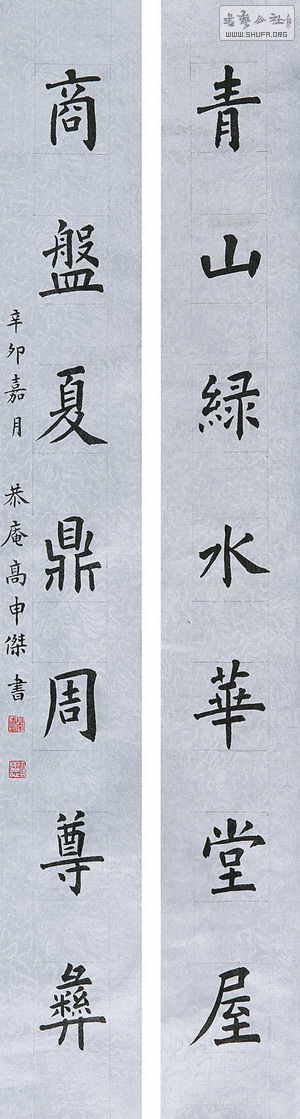 青山緑水華堂屋
商盤夏鼎周尊彝
辛卯嘉月 恭庵高申傑書
書藝公社
WWW.SHUFA.ORG